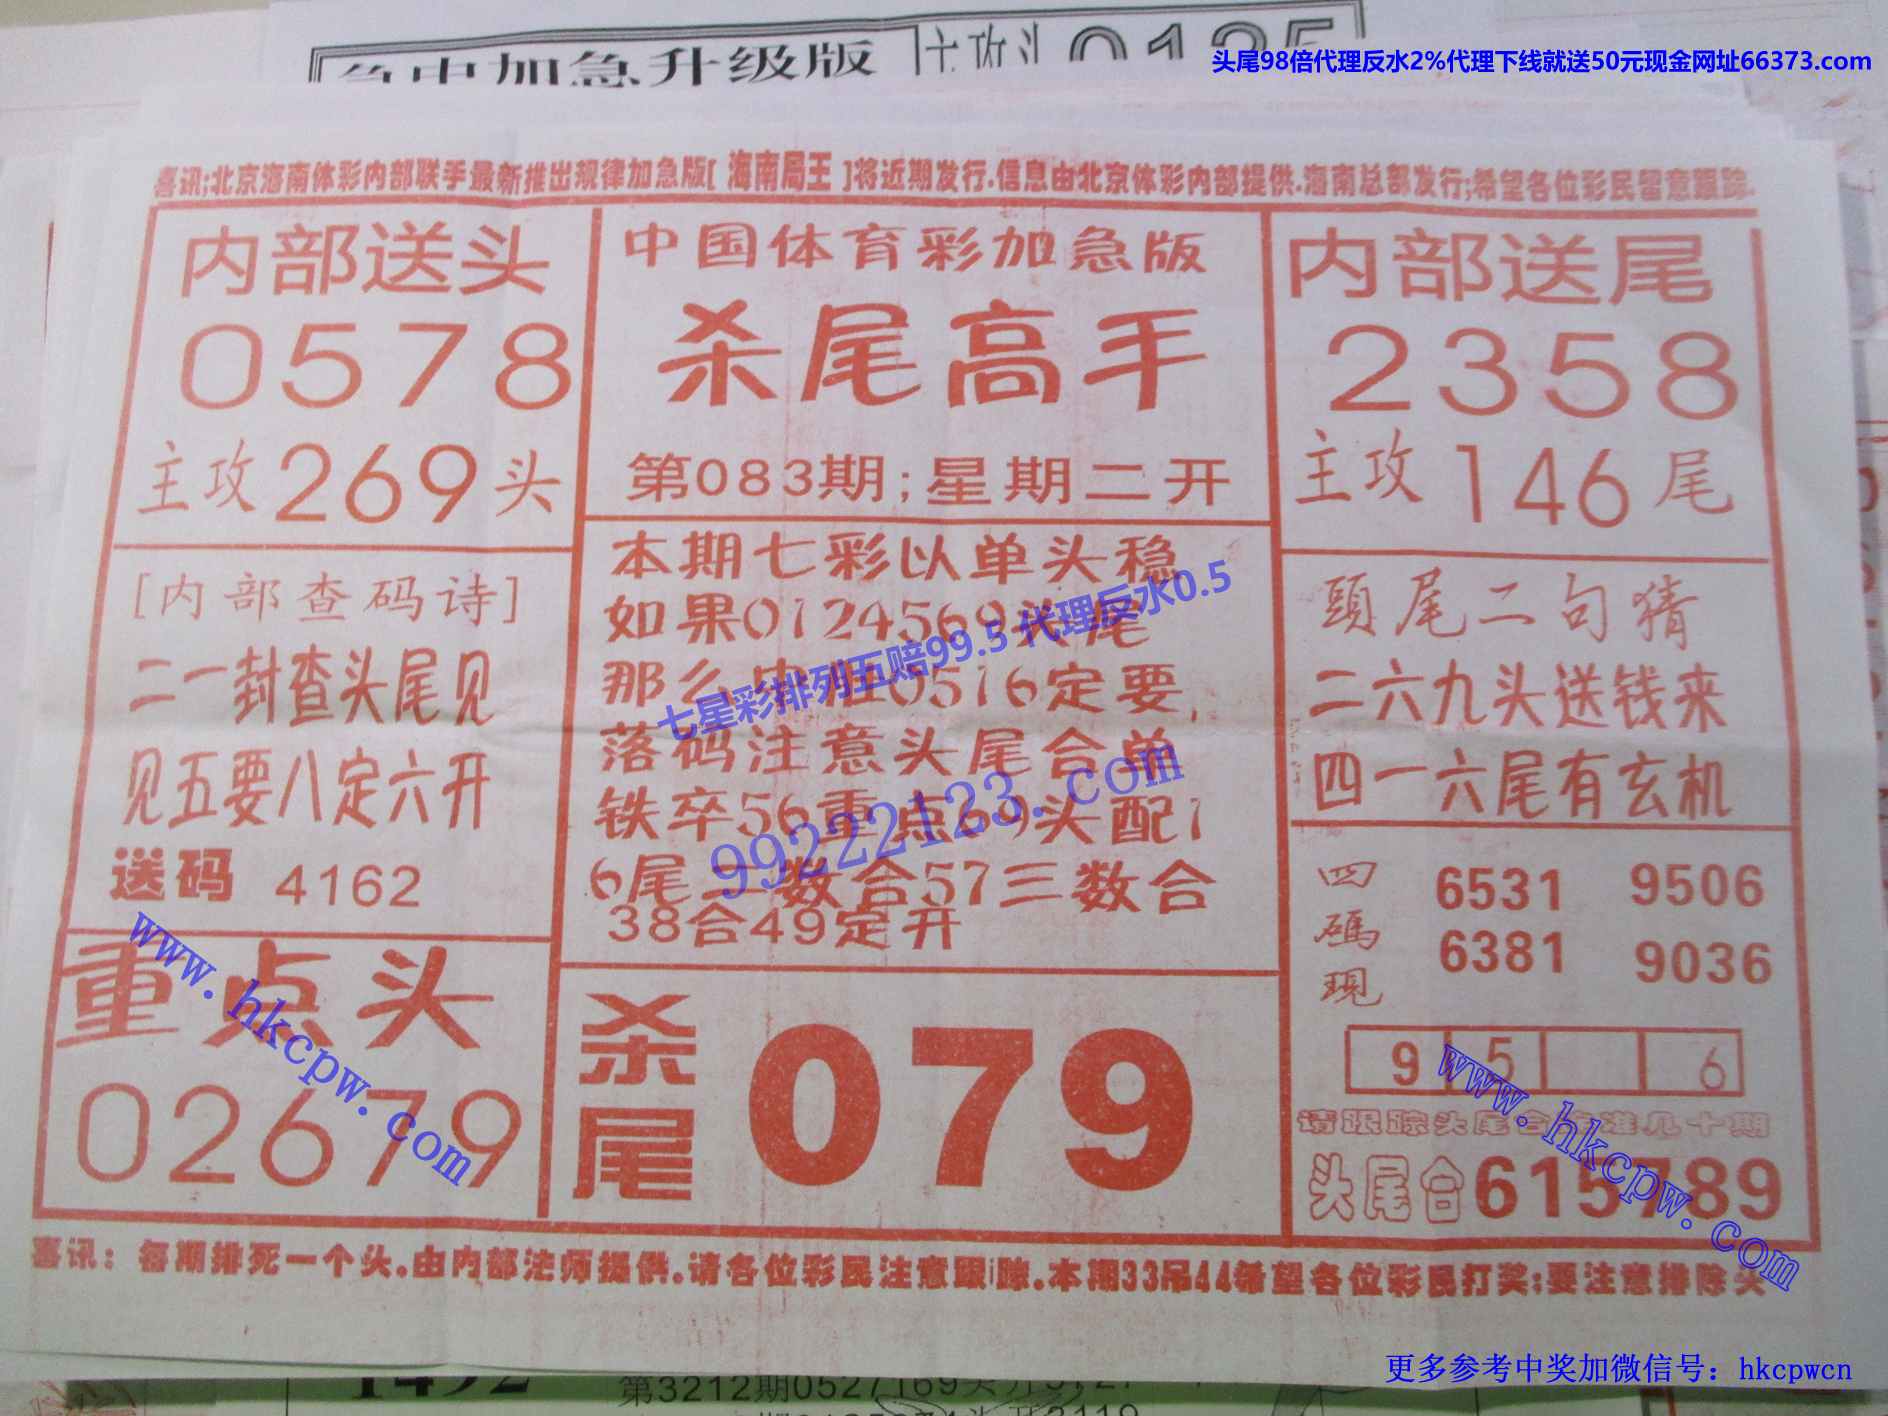 加急升级版
头尾98倍代理反水2%代理下线就送50元现金网址66373.com
喜讯;北京海南体彩内部联手最新推出规律加急版[ 海南局王 ]将近期发行.信息由北京体彩内部提供.海南总部发行;希望各位彩民留意跟踪.
内部送头
0578
主攻269头
中国体育彩加急版
杀尾高手
第083期;星期二开
内部送尾
2358
主攻146尾
[内部查码诗]
二一封查头尾见
见五要八定六开
送码 4162
本期七彩以单头稳
如果0124569头尾
那么 0516定要,
落码注意头尾合单
铁卒56重点69头配1
6尾二数合57三数合
38合49定开
頭尾二句猜
二六九头送钱来
四一六尾有玄机
四碼現
6531 9506
6381 9036
9 5 6
请跟踪头尾合 准几十期
头尾合615789
重点头
02679
杀尾
079
喜讯：每期排死一个头.由内部法师提供.请各位彩民注意跟踪.本期33吊44希望各位彩民打奖;要注意排除头
七星彩排列五赔99.5 代理反水0.5
99222123.com
www.hkcpw.com
www.hkcpw.com
1492
第3212期0527169头开
更多参考中奖加微信号：hkcpwcn